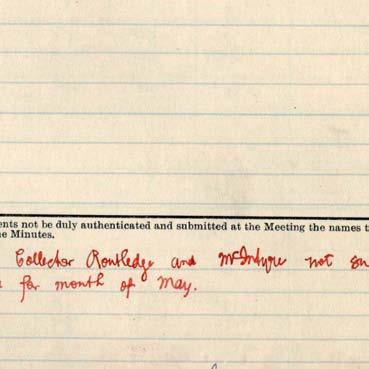 ents not be duly authenticated and submitted at the Meeting the names t
e Minutes.
Collector Routledge and McIntyre not su
for month of May.